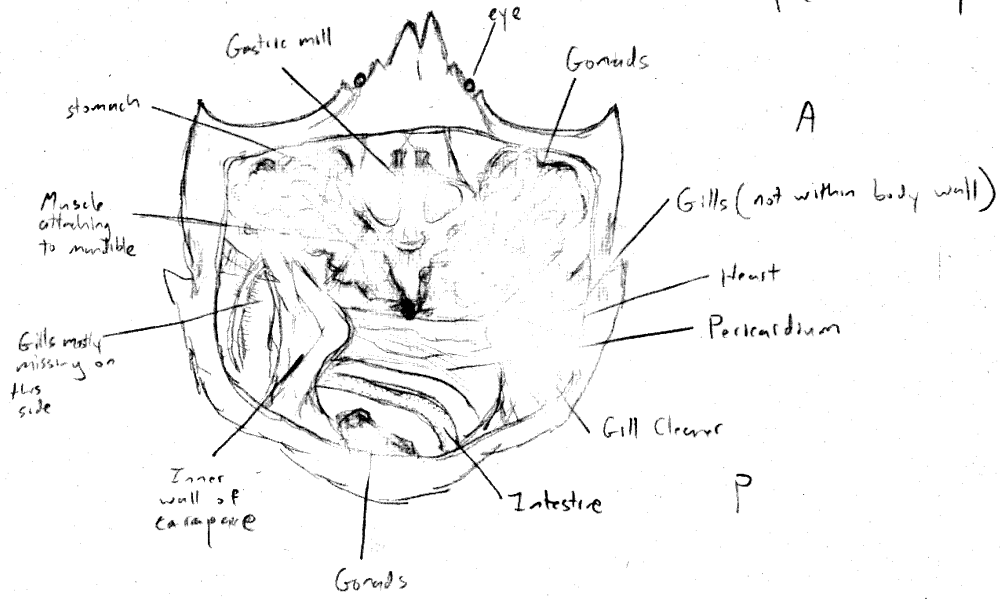 eye
Gastric mill
Gonads
stomach
A
Muscle
attaching
to mandible
Gills (not within body wall)
Heart
Pericardium
Gills mostly
missing on
this
side
Gill Cleaner
Inner
wall of
carapace
Intestine
P
Gonads